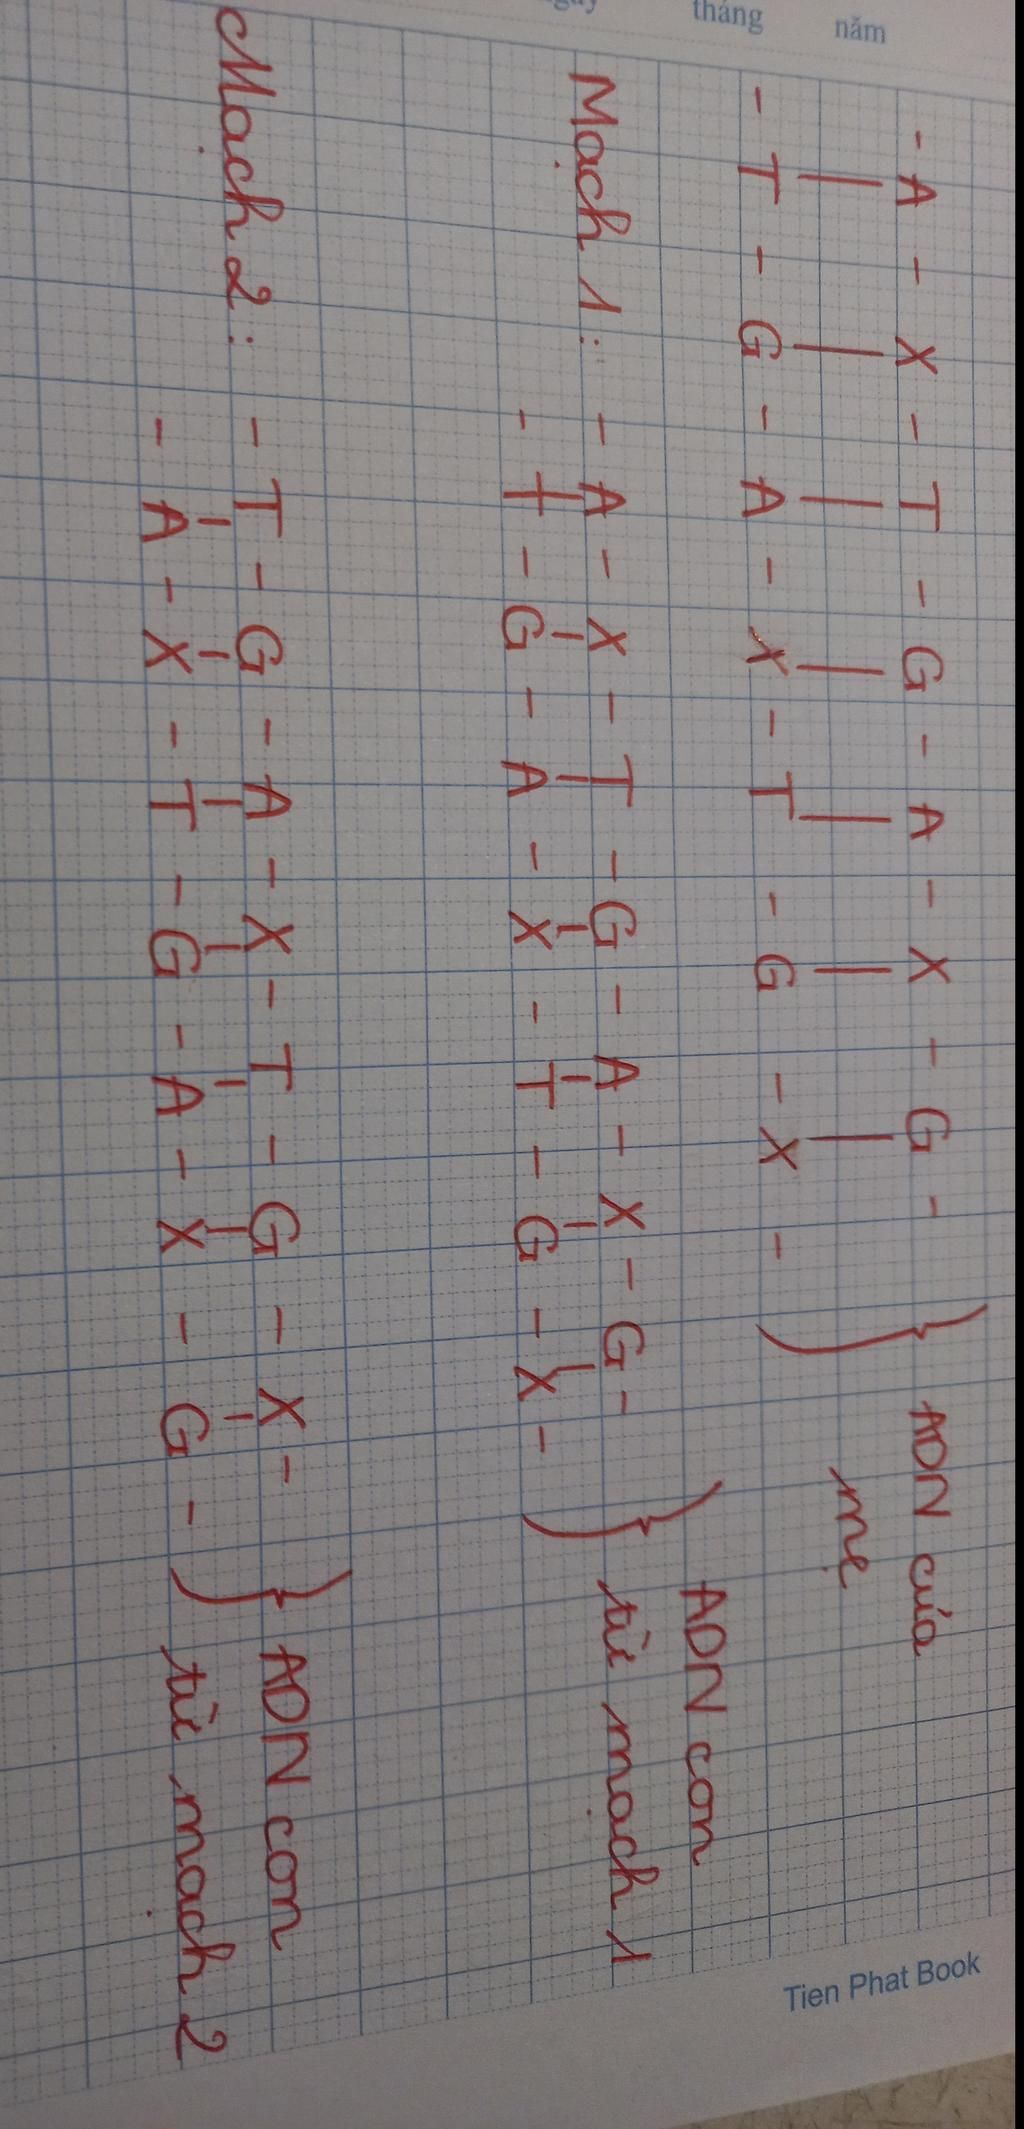 ngày tháng năm
- A - X - T - G - A - X - G -
- T - G - A - X - T - G - X - } ADN của mẹ
Mạch 1: - A - X - T - G - A - X - G -
- T - G - A - X - T - G - X - } ADN con từ mạch 1
Mạch 2: - T - G - A - X - T - G - X -
- A - X - T - G - A - X - G - } ADN con từ mạch 2
Tien Phat Book